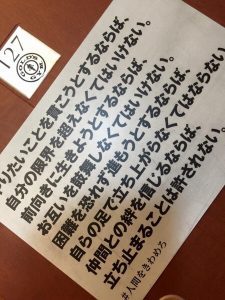 127
GOLD'S GYM
やりたいことを貫こうとするならば、
自分の限界を超えなくてはいけない。
前向きに生きようとするならば、
お互いを鼓舞しなくてはいけない。
困難を恐れず進もうとするならば、
自らの足で立ち上がらなくてはならない。
仲間との絆を信じるならば、
立ち止まることは許されない。
#人間をきわめろ